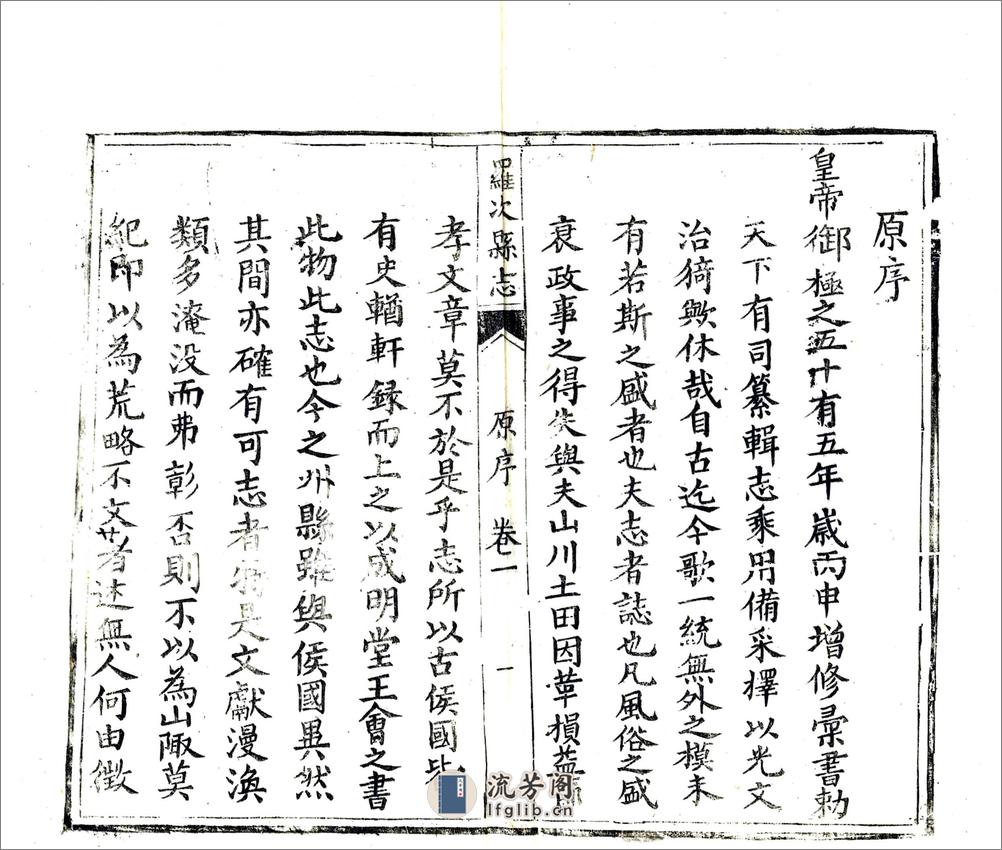 原序
皇帝御極之五十有五年歲丙申增修彙書勅
天下有司纂輯志乘用備采擇以光文
治猗歟休哉自古迄今歌一統無外之模未
有若斯之盛者也夫志者誌也凡風俗之盛
衰政事之得失與夫山川土田因革損益
羅次縣志
原序
卷一
一
孝文章莫不於是乎志所以古侯國
有史輶軒録而上之以成明堂王會之書
此物此志也今之州縣雖與侯國異然
其間亦確有可志者特是文獻漫漶
類多淹没而弗彰否則不以為山陬莫
紀即以為荒略不文甚者述無人何由徵
流芳阁
lfglib.cn